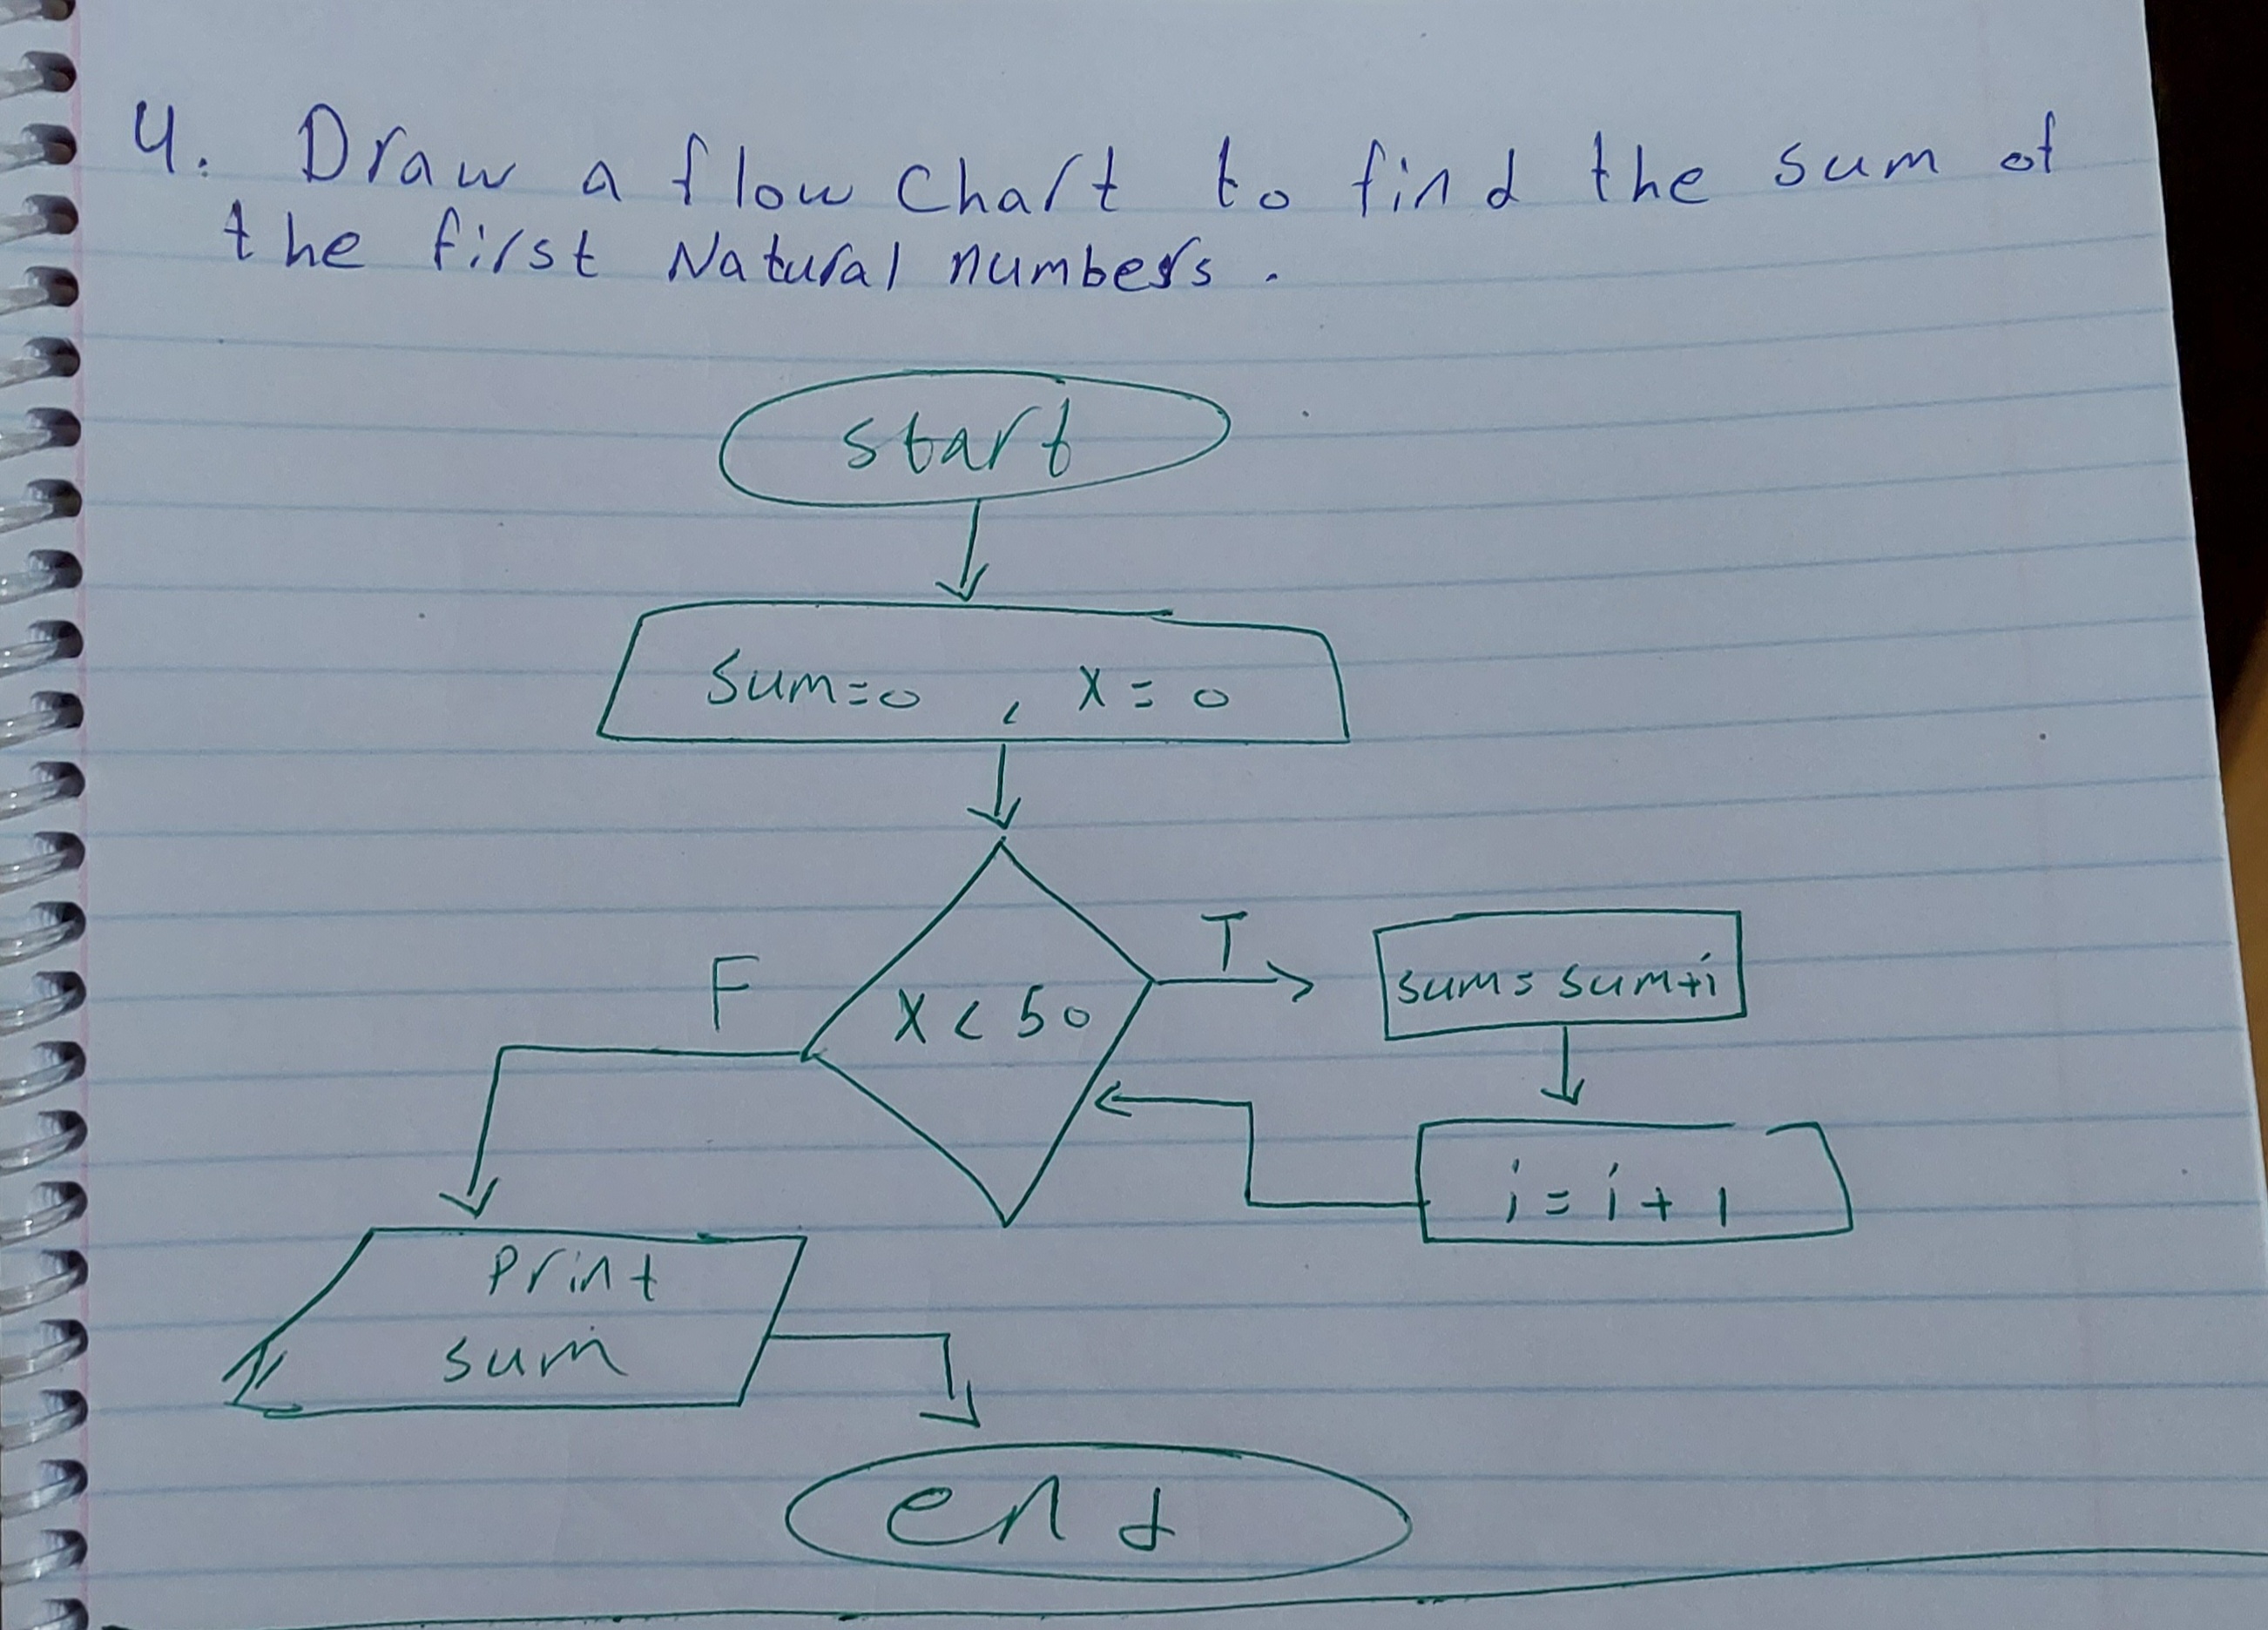 4. Draw a flow Chart to find the sum of
the first Natural numbers.
start
Sum=0 , X = 0
X < 50
T
sum= sum+i
F
i = i + 1
Print
sum
end